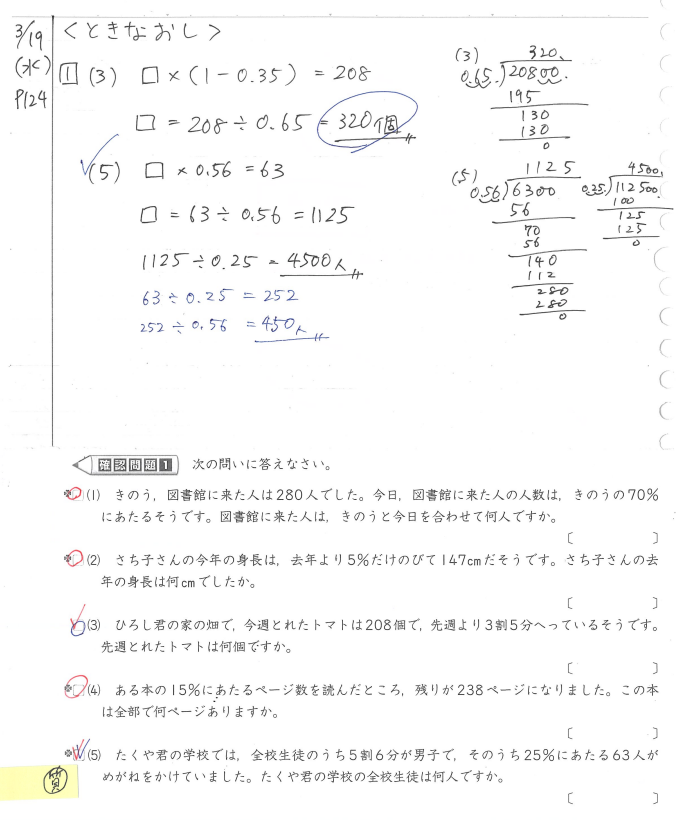 3/19
(水)
P124
<ときなおし>
1 (3) □×(1-0.35) = 208
□ = 208÷0.65 = 320個
(5) □×0.56 = 63
□ = 63÷0.56 = 1125
1125÷0.25 = 4500人
63÷0.25 = 252
252÷0.56 = 450人
(3) 320.
0.65.)20800.
195
130
130
0
(5) 1125
0.56.)6300
56
70
56
140
112
280
280
0
4500.
0.25.)112500.
100
125
125
0
確認問題1 次の問いに答えなさい。
※□(1) きのう，図書館に来た人は280人でした。今日，図書館に来た人の人数は，きのうの70%
にあたるそうです。図書館に来た人は，きのうと今日を合わせて何人ですか。
〔 〕
※□(2) さち子さんの今年の身長は，去年より5%だけのびて147cmだそうです。さち子さんの去
年の身長は何cmでしたか。
〔 〕
□(3) ひろし君の家の畑で，今週とれたトマトは208個で，先週より3割5分へっているそうです。
先週とれたトマトは何個ですか。
〔 〕
※□(4) ある本の15%にあたるページ数を読んだところ，残りが238ページになりました。この本
は全部で何ページありますか。
〔 〕
※□(5) たくや君の学校では，全校生徒のうち5割6分が男子で，そのうち25%にあたる63人が
めがねをかけていました。たくや君の学校の全校生徒は何人ですか。
〔 〕
質